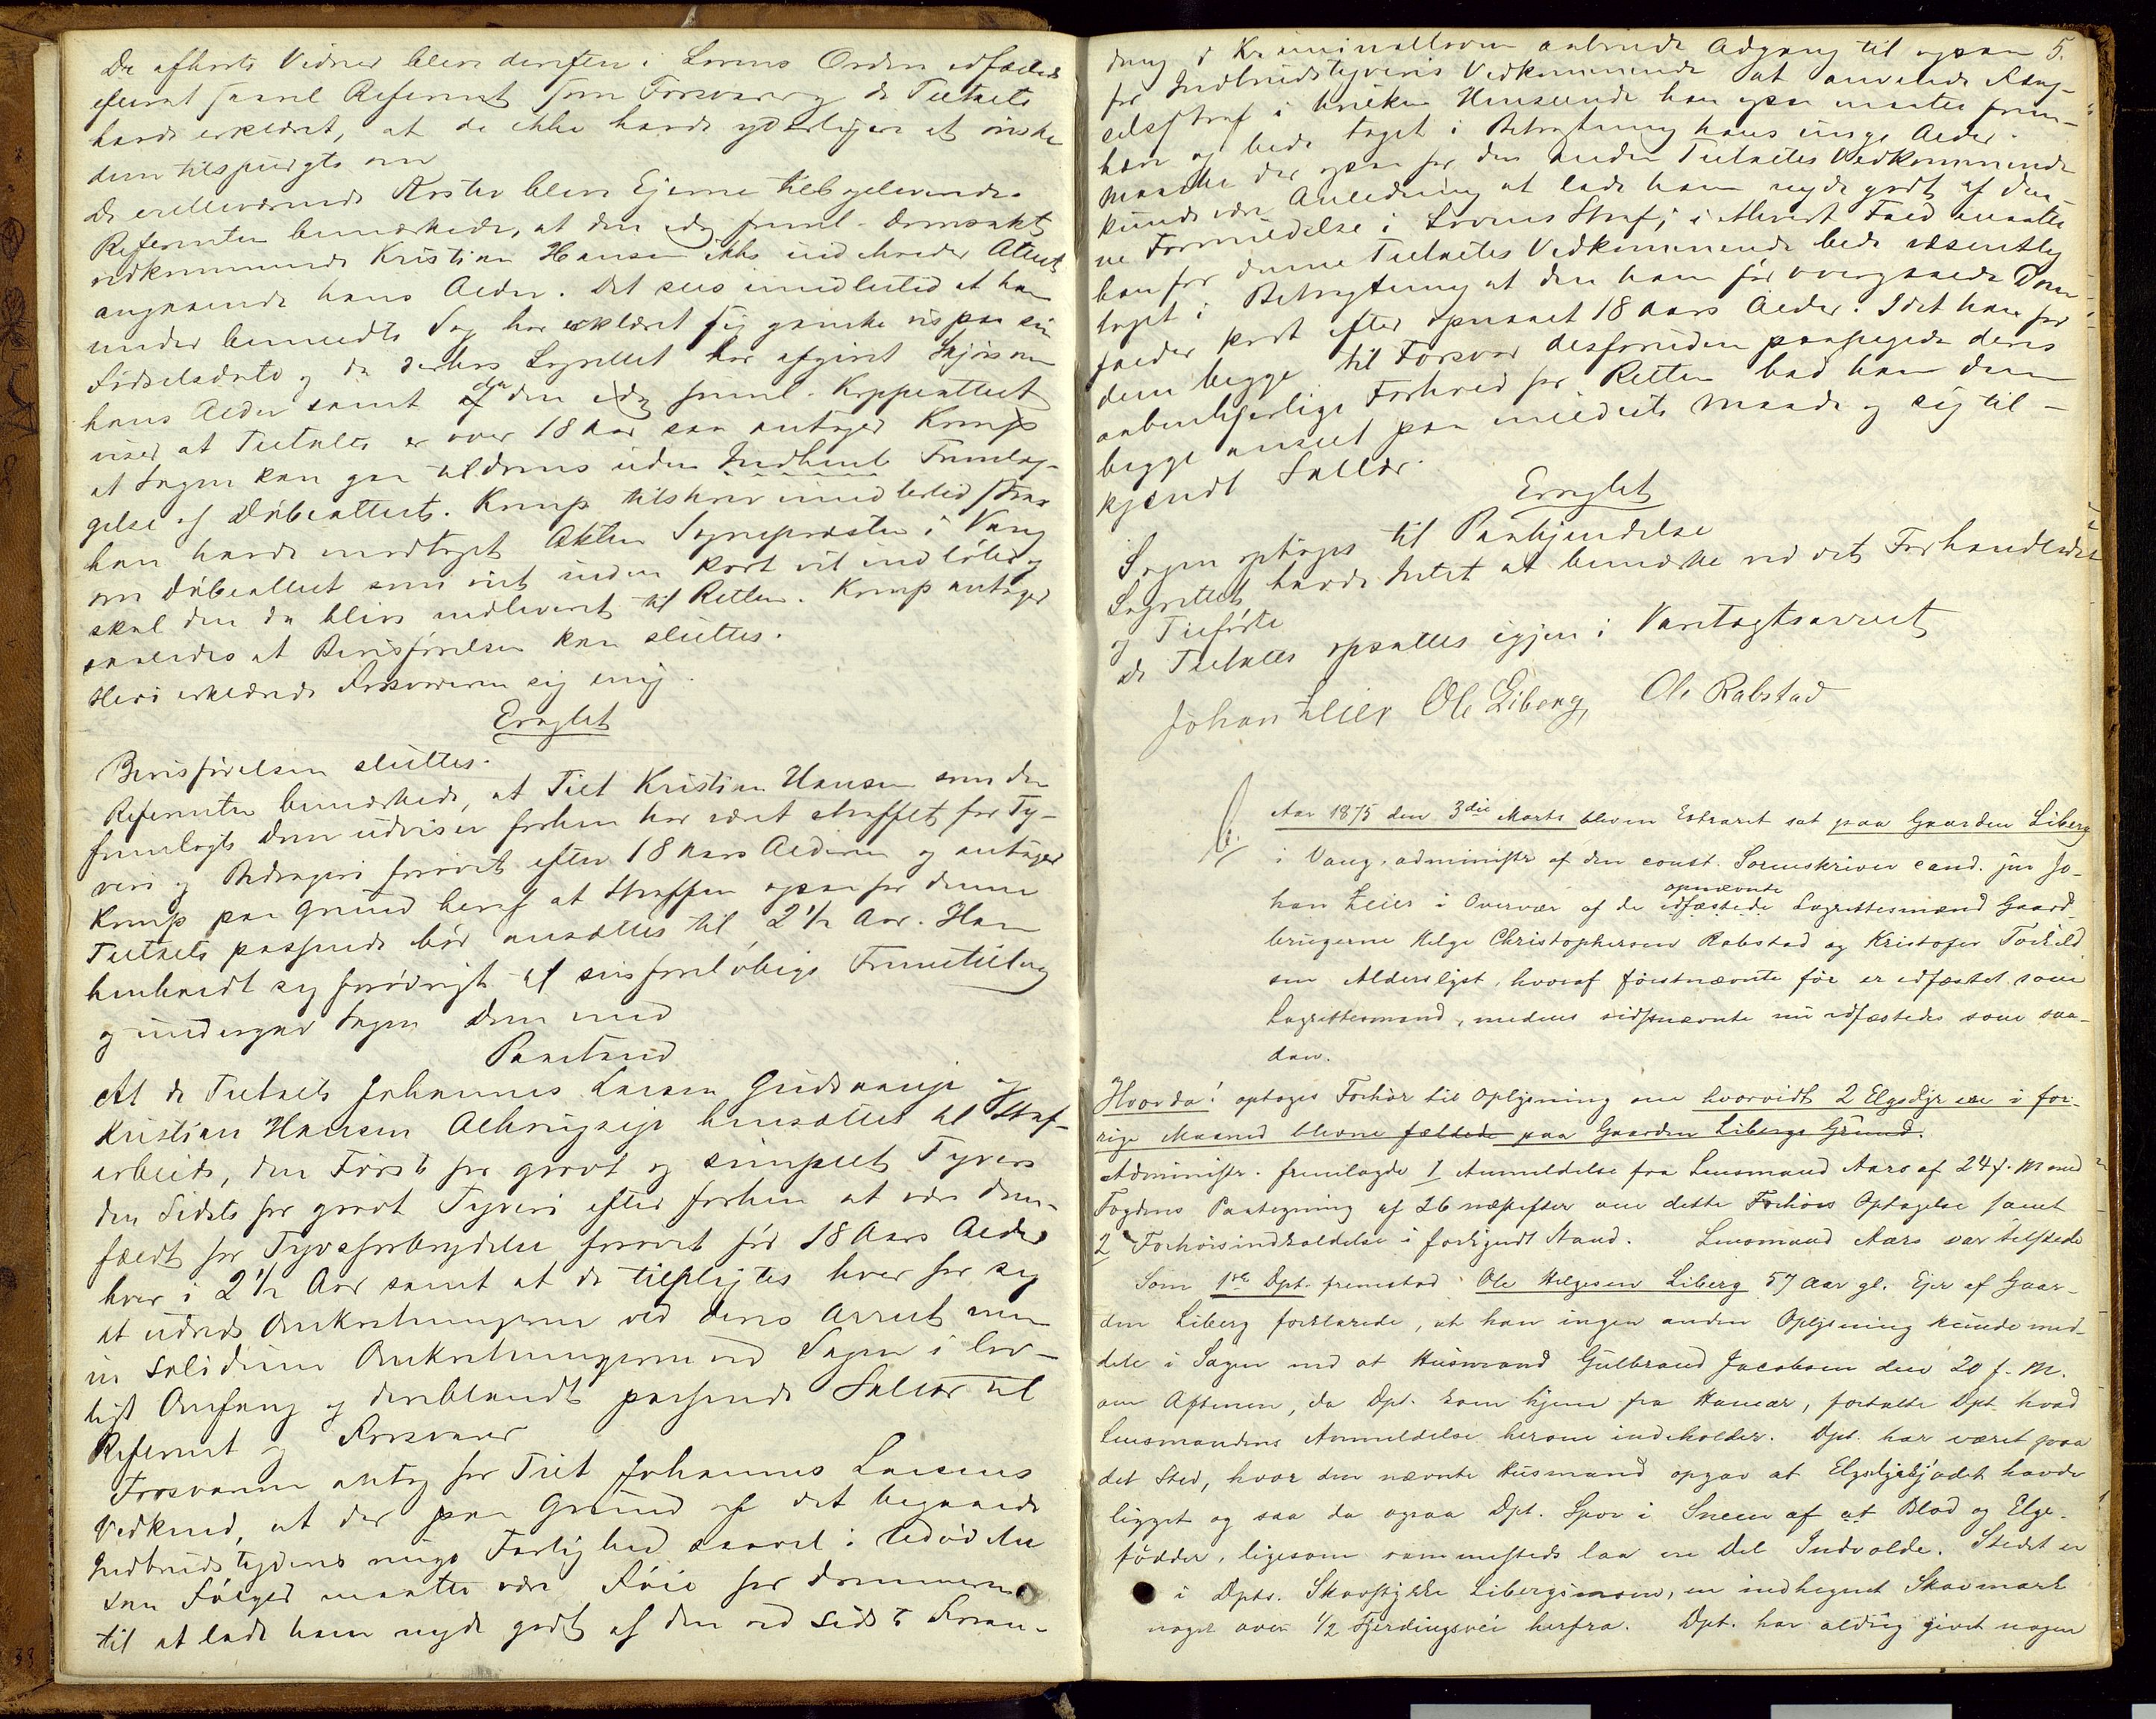 De afhørte Vidner blev derefter i Lovens Orden edfæstede
efterat saavel Referent som Forsvarer og de Tiltalte
havde erklæret, at de ikke havde yderligere at ønske
dem tilspurgte om
De tilstedeværende Koster blev Ejerne tilbageleverede.
Referenten bemærkede, at den idag freml. Domsakt
vedkommende Kristian Hansen ikke indeholder Attest
angaaende hans Alder. Det sees imidlertid at han
under bemeldte Sag har erklæret sig ganske vis paa sin
Fødselsdato og da derhos Lagrettet har afgivet Skjøn om
hans Alder samt da den idag freml. Koppeattest
viser at Tiltalte er over 18 Aar saa antager Komp
at Sagen kan gaa til Doms uden Fremlæg-
gelse af Døbeattest. Komp tilskrev imidlertid strax
han havde modtaget Akten Sognepræsten i Vang
om Døbeattest som vist inden kort vil indløbe og
skal den da blive indleveret til Retten. Komp antager
saaledes at Bevisførelsen kan sluttes.
Heri erklærede Forsvareren sig enig.
Eragtet
Bevisførelsen sluttes.
Referenten bemærkede, at Tilt Kristian Hansen som den
fremlagte Dom udviser forhen har været straffet for Ty-
veri og Bedrageri forøvet efter 18 Aars Alderen og antager
Komp paa Grund heraf at Straffen ogsaa for denne
Tiltalte passende bør ansættes til 2 1/2 Aar. Han
henholdt sig forøvrigt til sin foreløbige Fremstilling
og indlod Sagen Dom med
Paastand
At de Tiltalte Johannes Larsen Gudsvangeje og
Kristian Hansen Alhrugseje hensættes til Straf-
arbeide, den Første for grovt og simpelt Tyveri
den Sidste for grovt Tyveri efter forhen at være dom-
fældt for Tyvsforbrydelse forøvet før 18 Aars Alder
hver i 2 1/2 Aar samt at de tilpligtes hver for sig
at udrede Omkostningerne ved deres Arrest men
in solidum Omkostningerne ved Sagen i lov-
ligt Omfang og deriblandt passende Sallær til
Referent og Forsvarer
Forsvareren antog for Tilt Johannes Larsens
Vedkmd, at der paa Grund af det begaaede
Indbrudstyveris ringe Farlighed saavel i Udøvelse
som Følger maatte være Føie for Dommeren
til at lade ham nyde godt af den ved sidste Foran-
dring i Kriminalloven aabnede Adgang til ogsaa 5.
for Indbrudstyveris Vedkommende at anvende Fæng-
selsstraf i hvilken Henseende han ogsaa maatte frem-
hæve og bede taget i Betragtning hans unge Alder.
Maaske der ogsaa for den anden Tiltaltes Vedkommende
kunde være Anledning at lade ham nyde godt af den-
ne Formildelse i Lovens Straf; i ethvert Fald maatte
han for denne Tiltaltes Vedkommende bede væsentlig
taget i Betragtning at den ham før overgaaede Dom
falder kort efter opnaaet 18 Aars Alder. Idet han for
dem begge til Forsvar desforuden paapegede deres
aabenhjertige Forhold for Retten bad han dem
begge anseet paa mildeste Maade og sig til-
kjendt Sallær.
Eragtet
Sagen optages til Paakjendelse
Lagrettet havde Intet at bemærke ved det Forhandlede
og Tilførte
De Tiltalte opsattes igjen i Varetægtsarrest
Johan Zeier Ole Liberg Ole Rabstad
Aar 1875 den 3die Marts blev en Extraret sat paa Gaarden Liberg
i Vang, administr. af den const. Sorenskriver cand. jur Jo-
han Zeier i Overvær af de opnævnte edfæstede Lagrettesmænd Gaard-
brugerne Helge Christophersen Rabstad og Kristofer Torkild
sen Alderslyst, hvoraf førstnævnte før er edfæstet som
Lagrettesmand, medens sidstnævnte nu edfæstedes som saa-
dan.
Hvorda! optages Forhør til Oplysning om hvorvidt 2 Elgsdyr ere i for-
rige Maaned blevne fældede paa Gaarden Libergs Grund.
Administr. fremlagde 1 Anmeldelse fra Lensmand Aars af 24 f. M med
Fogdens Paategning af 26 næstefter om dette Forhørs Optagelse samt
2 Forhørsindkaldelse i forkyndt Stand. Lensmand Aars var tilstede
Som 1ste Dpt. fremstod Ole Helgesen Liberg 57 Aar gl. Ejer af Gaar-
den Liberg forklarede, at han ingen anden Oplysning kunde med-
dele i Sagen end at Husmand Gulbrand Jacobsen den 20 f. M.
om Aftenen, da Dpt. kom hjem fra Hamar, fortalte Dpt. hvad
Lensmandens Anmeldelse herom indeholder. Dpt. har været paa
det Sted, hvor den nævnte Husmand opgav at Elgsdyrkjødet havde
ligget og saa da ogsaa Dpt. Spor i Sneen af at Blod og Elge-
fødder, ligesom sammesteds laa en Del Indvolde. Stedet er
i Dpts. Skovstykke Libergsmoen, en indhegnet Skovmark
noget over 1/2 Fjerdingsvei herfra. Dpt. har aldrig givet nogen